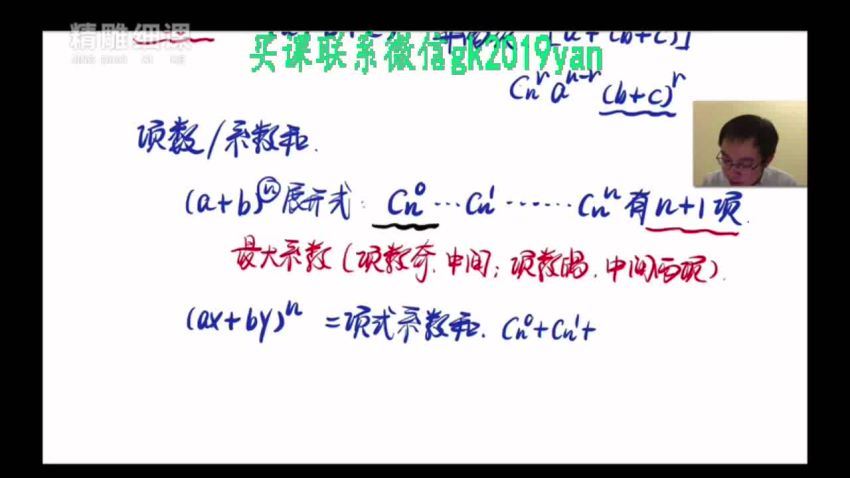 精雕细课
买课联系微信gk2019yan
[a+(b+c)]
Cn^r a^(n-r) (b+c)^r
项数/系数和.
(a+b)^ⓝ展开式: Cn^0 … Cn^1 …… Cn^n 有n+1项.
最大系数(项数奇.中间;项数偶.中间两项).
(ax+by)^n =项式系数和. Cn^0+Cn^1+